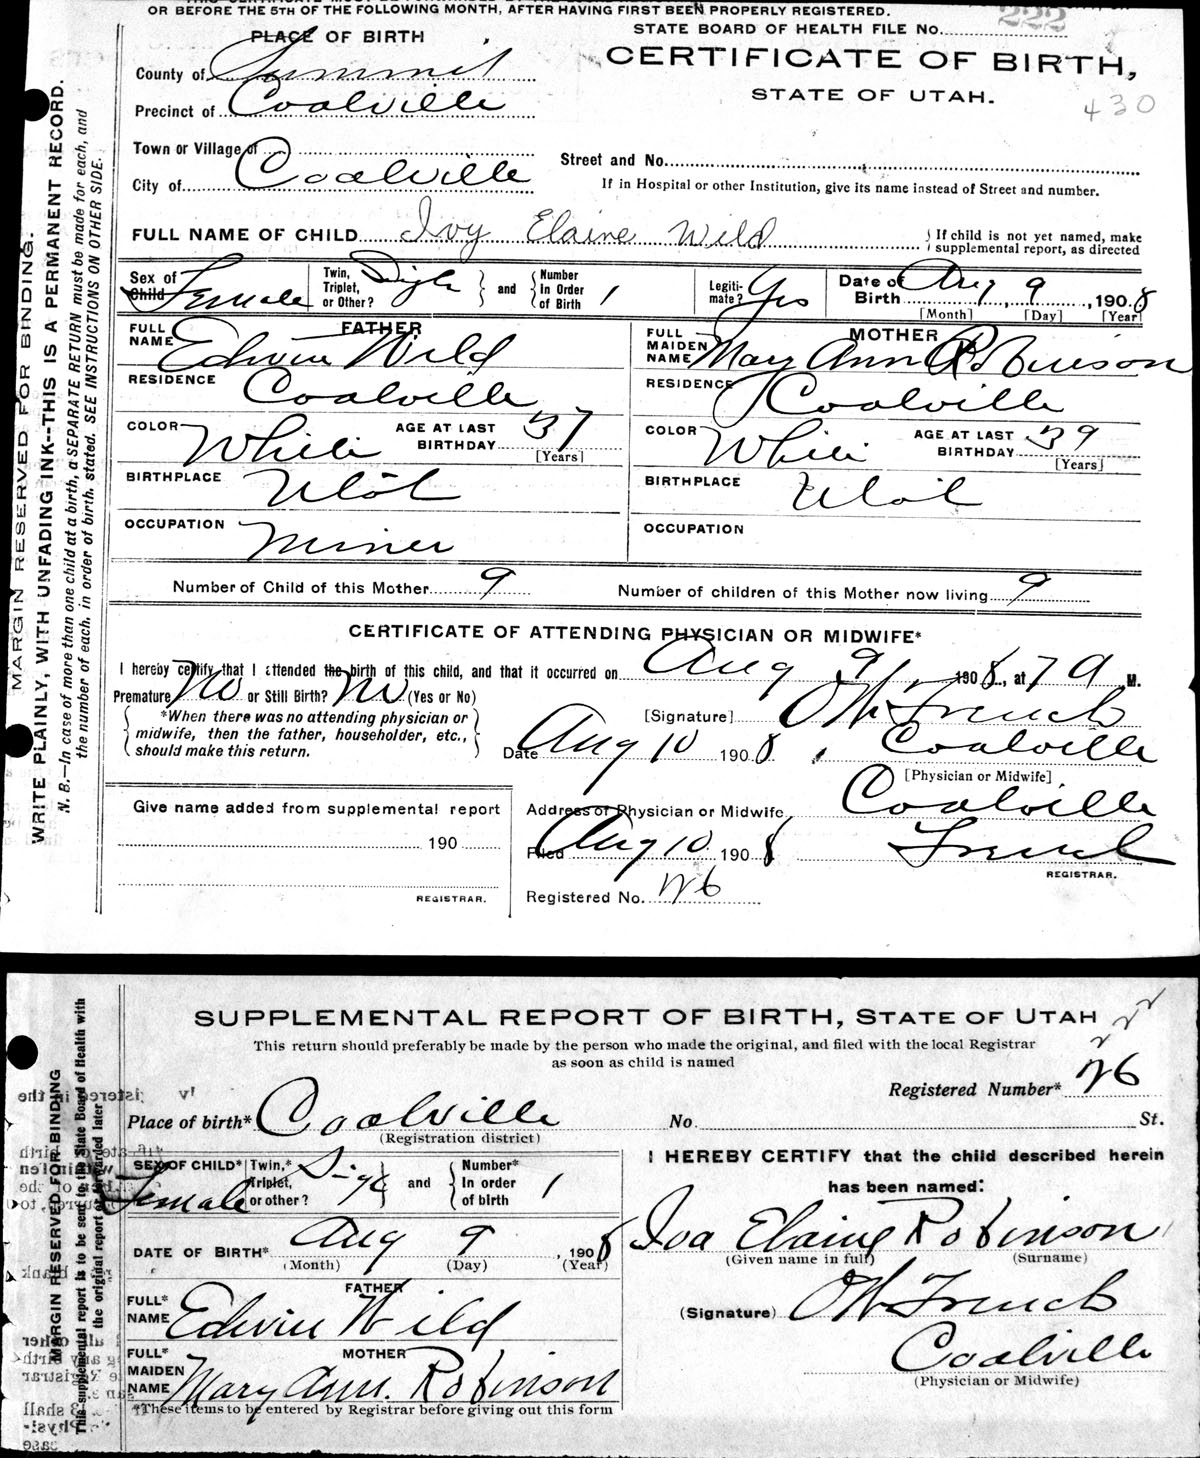 OR BEFORE THE 5TH OF THE FOLLOWING MONTH, AFTER HAVING FIRST BEEN PROPERLY REGISTERED.
STATE BOARD OF HEALTH FILE NO. 222
PLACE OF BIRTH
CERTIFICATE OF BIRTH,
STATE OF UTAH.
430
County of Summit
Precinct of Coalville
Town or Village of
City of Coalville
Street and No.
If in Hospital or other Institution, give its name instead of Street and number.
FULL NAME OF CHILD Ivy Elaine Wild
If child is not yet named, make supplemental report, as directed
Sex of Child Female
Twin, Triplet, or Other? Single and Number In Order of Birth 1
Legitimate? Yes
Date of Birth Aug 9, 1908
[Month] [Day] [Year]
FATHER
FULL NAME Edwin Wild
RESIDENCE Coalville
COLOR White AGE AT LAST BIRTHDAY 37 [Years]
BIRTHPLACE Utah
OCCUPATION Miner
MOTHER
FULL MAIDEN NAME Mary Ann Robinson
RESIDENCE Coalville
COLOR White AGE AT LAST BIRTHDAY 39 [Years]
BIRTHPLACE Utah
OCCUPATION
Number of Child of this Mother 9 Number of children of this Mother now living 9
CERTIFICATE OF ATTENDING PHYSICIAN OR MIDWIFE*
I hereby certify that I attended the birth of this child, and that it occurred on Aug 9, 1908, at 7 A. M.
Premature No or Still Birth? No (Yes or No)
*When there was no attending physician or midwife, then the father, householder, etc., should make this return.
[Signature] O W French
Date Aug 10 1908, Coalville
[Physician or Midwife]
Give name added from supplemental report
190
REGISTRAR.
Address of Physician or Midwife, Coalville
Filed Aug 10 1908 French
REGISTRAR.
Registered No. 26
MARGIN RESERVED FOR BINDING.
WRITE PLAINLY, WITH UNFADING INK--THIS IS A PERMANENT RECORD.
N. B.—In case of more than one child at a birth, a SEPARATE RETURN must be made for each, and
the number of each, in order of birth, stated. SEE INSTRUCTIONS ON OTHER SIDE.
SUPPLEMENTAL REPORT OF BIRTH, STATE OF UTAH
222
This return should preferably be made by the person who made the original, and filed with the local Registrar
as soon as child is named
Registered Number* 26
Place of birth* Coalville No. St.
(Registration district)
SEX OF CHILD* Female
Twin,* Triplet, or other? Single and Number* In order of birth 1
I HEREBY CERTIFY that the child described herein
has been named:
DATE OF BIRTH* Aug 9, 1908
(Month) (Day) (Year)
Iva Elaine Robinson
(Given name in full) (Surname)
FATHER
FULL* NAME Edwin Wild
(Signature) O W French
MOTHER
FULL* MAIDEN NAME Mary Ann. Robinson
Coalville
(Physician or Midwife)
*These items to be entered by Registrar before giving out this form
MARGIN RESERVED FOR BINDING
This supplemental report is to be sent to the State Board of Health with
the original report or forwarded later